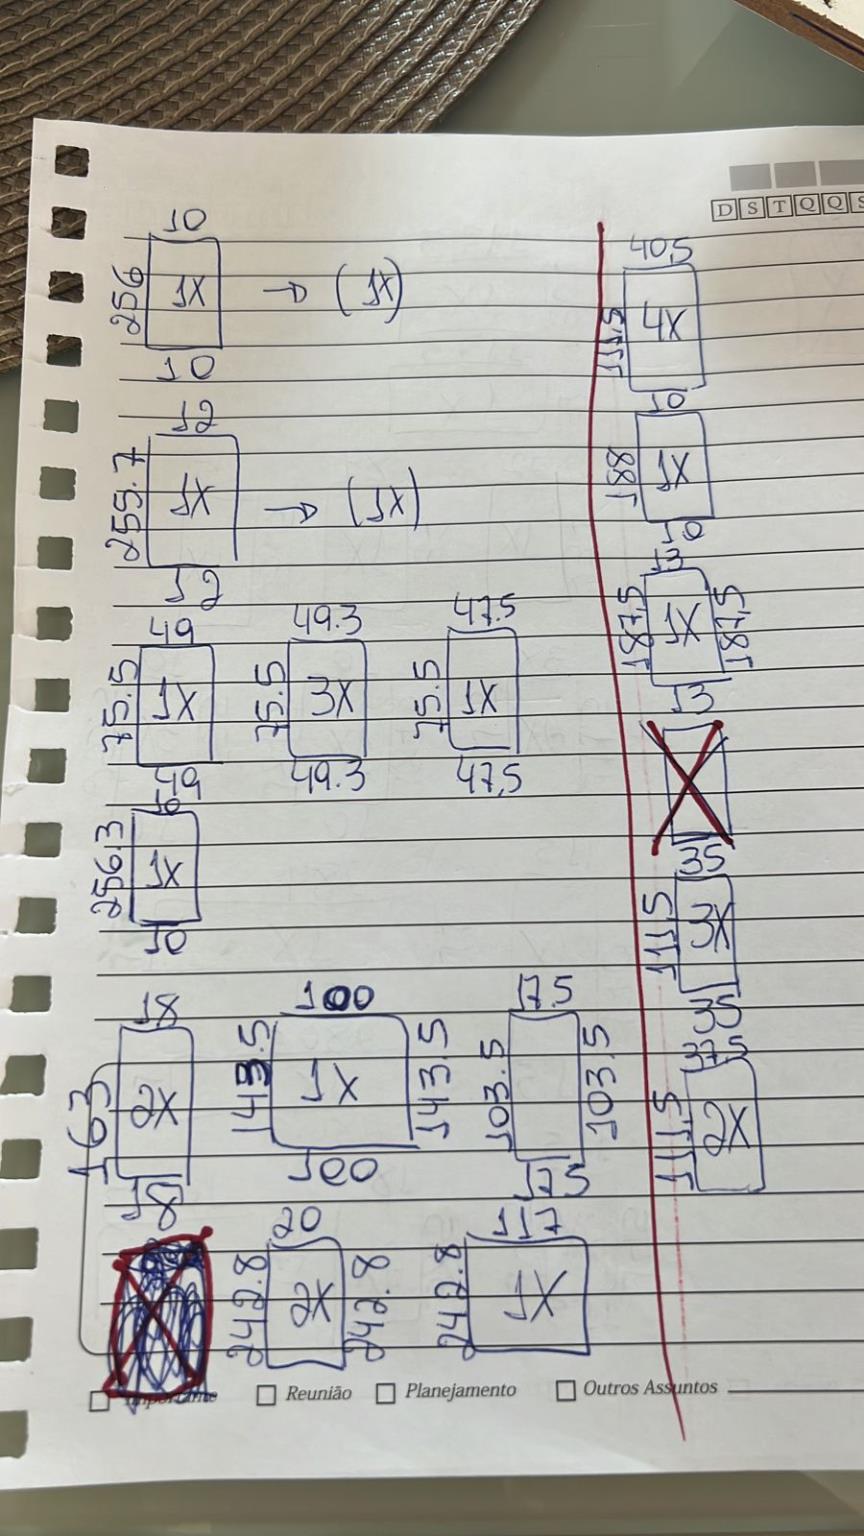 D S T Q Q S
10
256 1X → (1X)
10
12
255.7 1X → (1X)
12
49 49.3 47.5
75.5 1X 75.5 3X 75.5 1X
49 49.3 47,5
10
256.3 1X
10
18 100 17.5
163 2X 143.5 1X 143.5 103.5 103.5
18 100 17.5
20 117
242.8 2X 242.8 242.8 1X
40,5
111,5 4X
10
188 1X
10
13
187,5 1X 187,5
13
35
111,5 3X
35
37,5
111,5 2X
Importante Reunião Planejamento Outros Assuntos